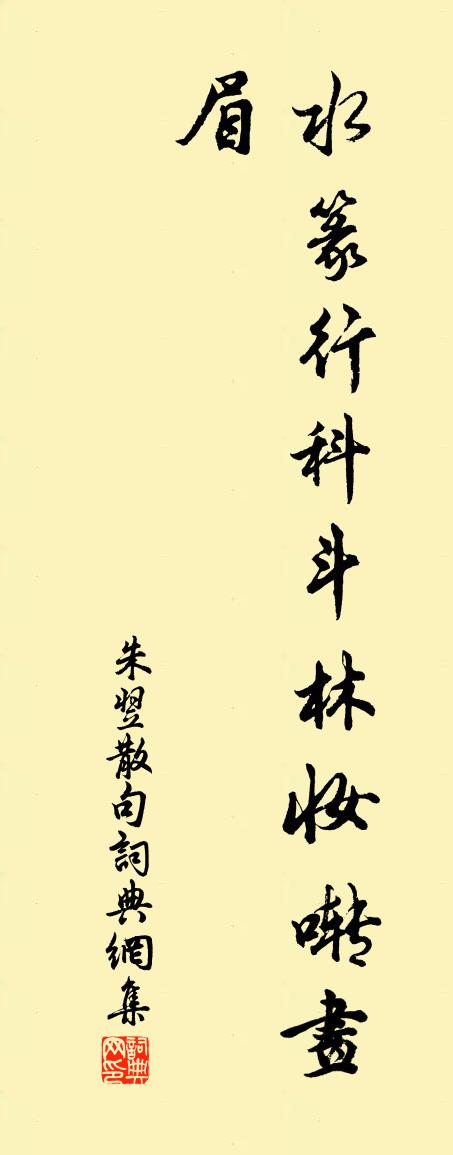 水篆行科斗林妆啭畫
眉
朱翌散句詞典網集
詞典
网印